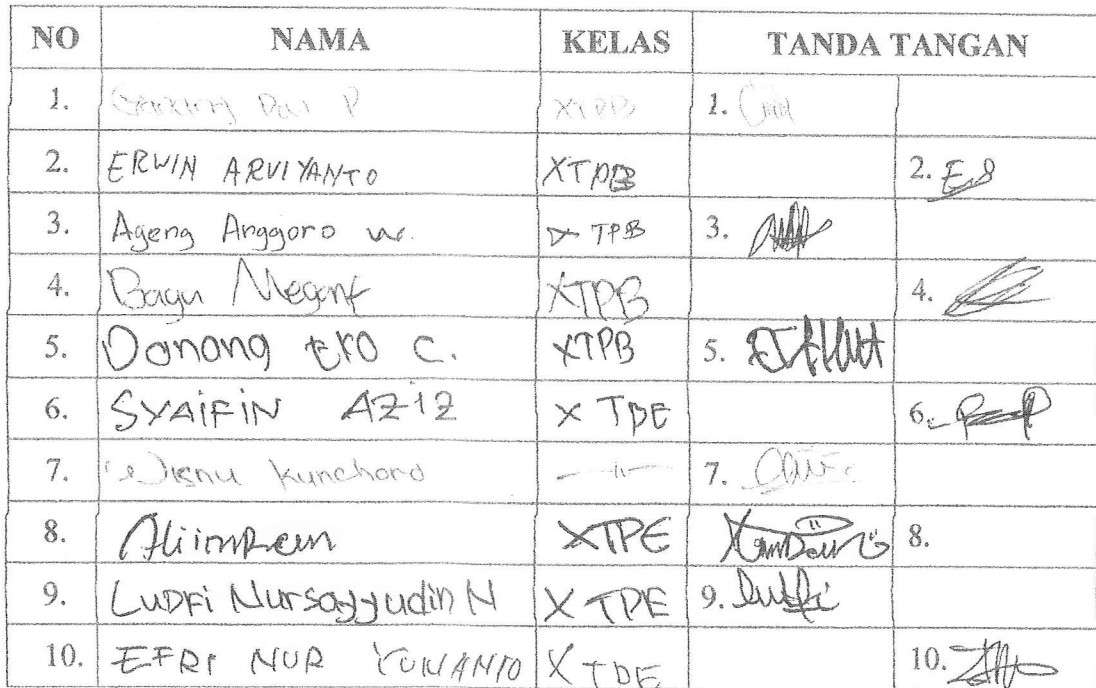 NO NAMA KELAS TANDA TANGAN
1. P XTPB 1.
2. ERWIN ARVIYANTO XTPB 2. ES
3. Ageng Anggoro w. X TPB 3.
4. Bagu Megant XTPB 4.
5. Danang Eko C. XTPB 5.
6. SYAIFIN AZIZ X TPE 6.
7. Wisnu Kunchoro -"- 7.
8. Aliimran XTPE 8.
9. LUDFI Nursayyudin N X TPE 9. Lutfi
10. EFRI NUR YUWANTO X TPE 10.